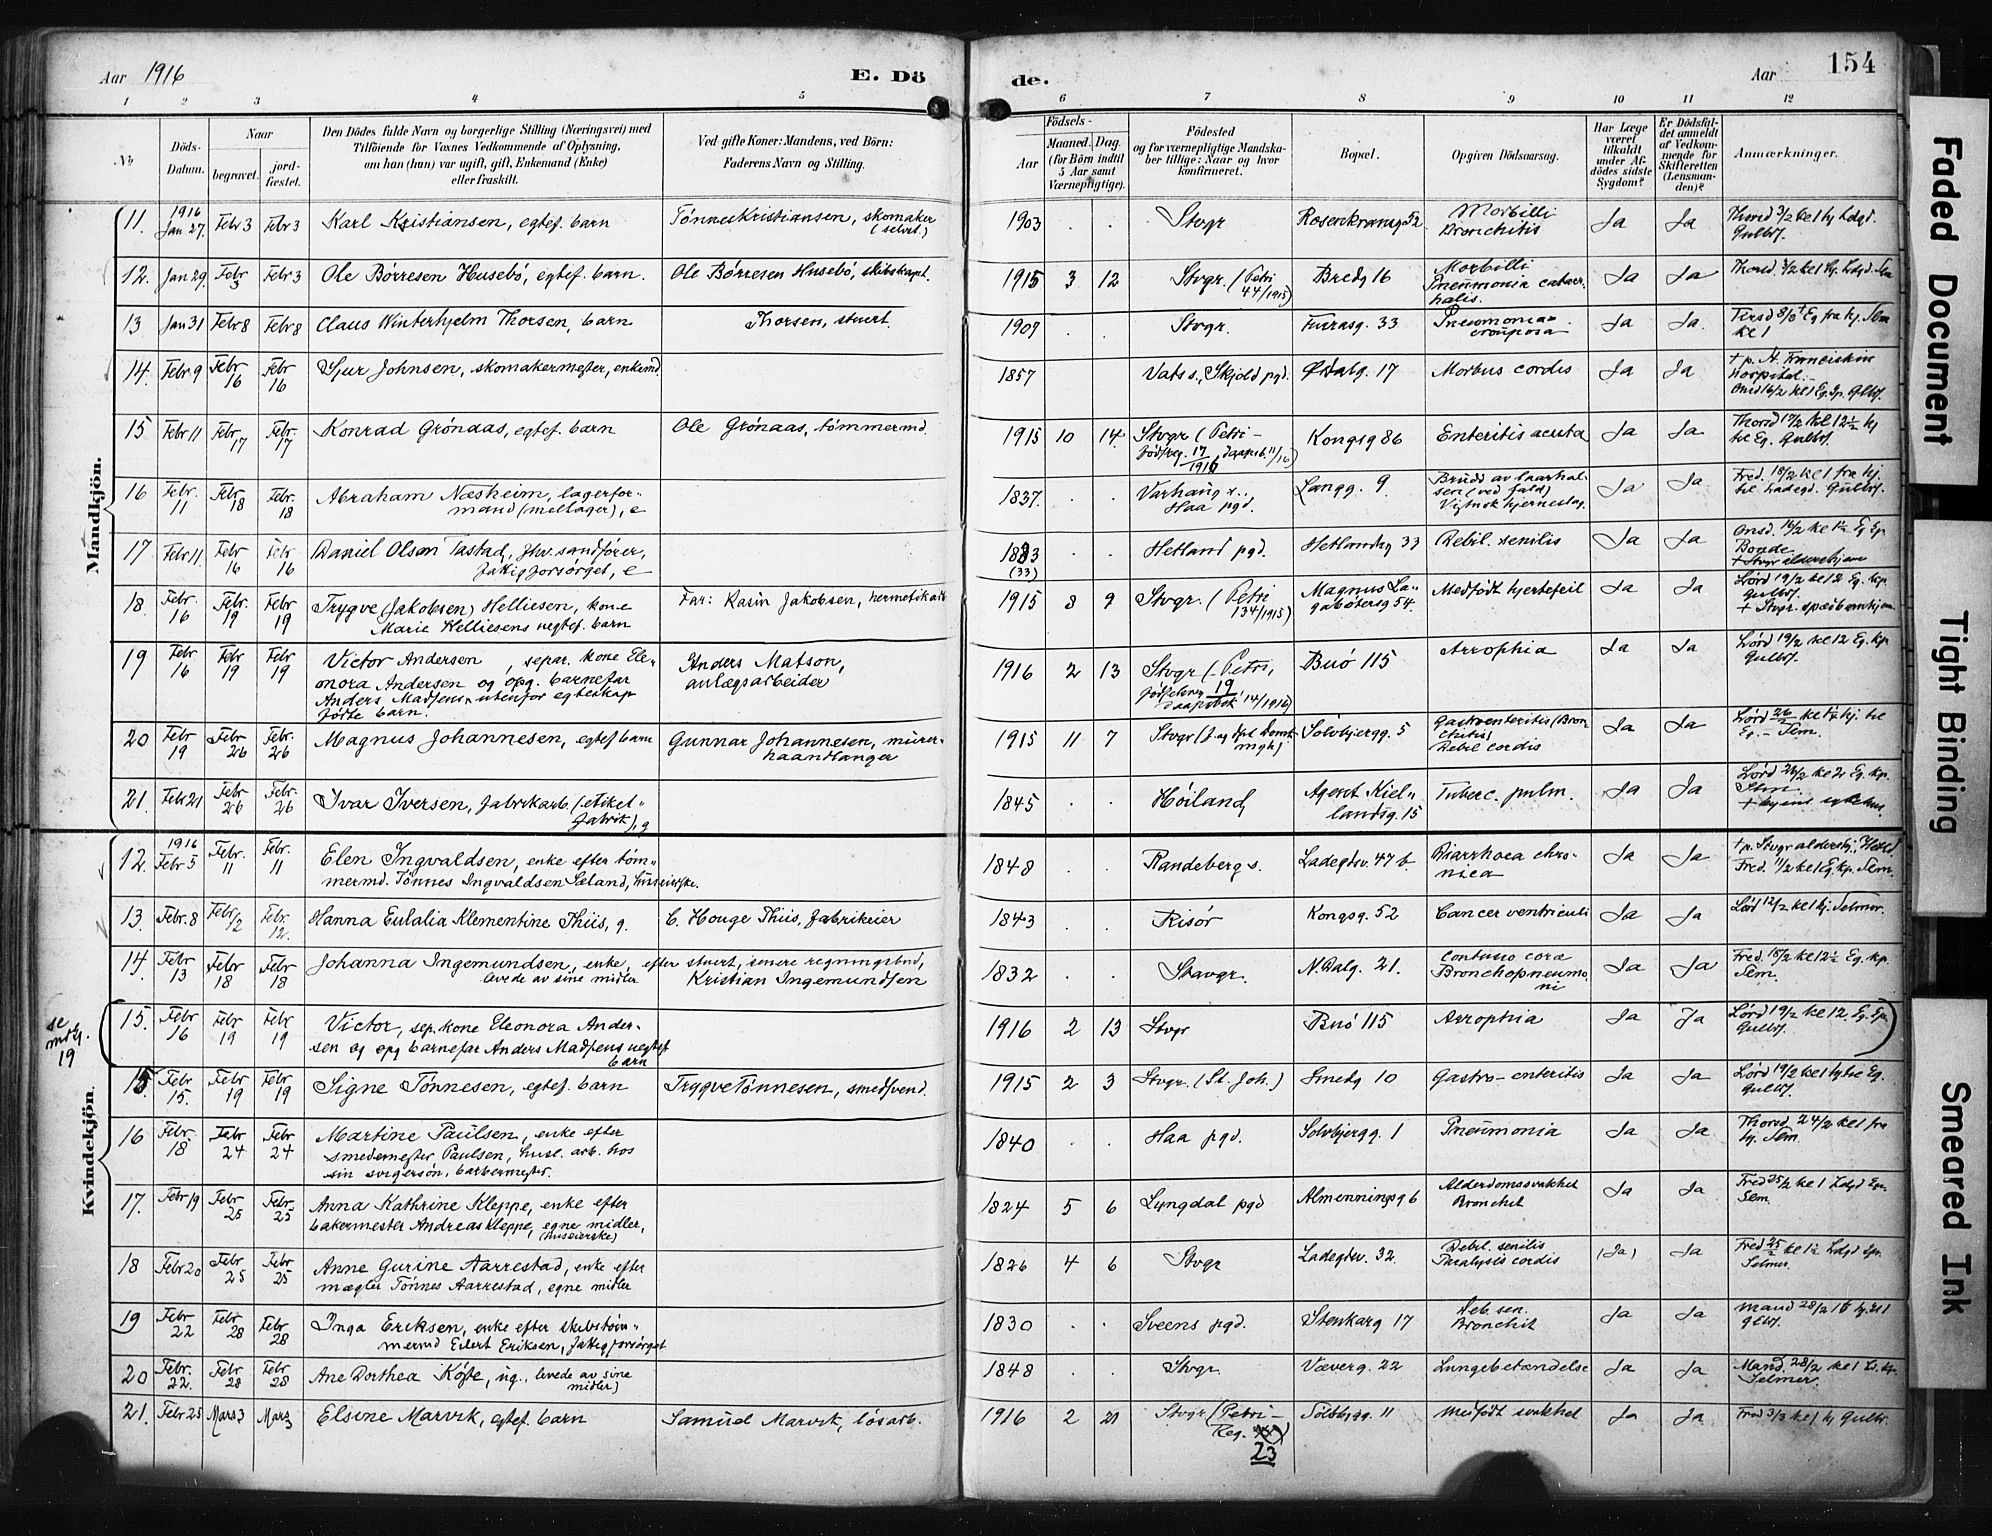 Aar 1916 E. Dö de. Aar 154
1 2 3 4 5 6 7 8 9 10 11 12
No Döds-Datum. Naar begravet. jord-fæstet. Den Dödes fulde Navn og borgerlige Stilling (Næringsvei) med Tilföiende for Voxnes Vedkommende af Oplysning, om han (hun) var ugift, gift, Enkemand (Enke) eller fraskilt. Ved gifte Koner: Mandens, ved Börn: Faderens Navn og Stilling. Födsels- Aar Maaned. Dag. (for Börn indtil 5 Aar samt Værnepligtige). Födested og for værnepligtige Mandskaber tillige: Naar og hvor konfirmeret. Bopæl. Opgiven Dödsaarsag. Har Læge været tilkaldt under Afdödes sidste Sygdom? Er Dödsfaldet anmeldt af Vedkommende for Skifteretten (Lensmanden)? Anmærkninger.
Mandkjön.
11. 1916 Jan 27. Febr 3 Febr 3 Karl Kristiansen, egtef. barn Tønnes Kristiansen, skomaker (selvst.) 1903 . . Stvgr Rosenkransg 52 Morbilli Bronchitis Ja Ja Thorsd 3/2 kl 1 hj Ldgd. Gulbr.
12. Jan 29. Febr 3 Febr 3 Ole Børresen Husebø, egtef. barn. Ole Børresen Husebø, skibskapt. 1915 3 12 Stvgr. (Petri 44/1915) Bredg 16 Morbilli Pneumonia catarrhalis. Ja Ja
13 Jan 31 Febr 8 Febr 8 Claus Winterhjelm Thorsen, barn Thorsen, stuert. 1907 . Stvgr. Furrasg. 33 Pneumonia crouposa Ja Ja.
14. Febr 9 Febr 16 Febr 16 Sjur Johnsen, skomakermester, enkemd 1857 Vats s., Skjold pgd. Ø Dalg. 17 Morbus cordis Ja Ja + p. St. Franciskus Hospital.
15 Febr 11 Febr 17 Febr. 17 Konrad Grønaas, egtef. barn Ole Grønaas, tømmermd 1915 10 14. Stvgr (Petri - fødselsreg. 17/1916 daapsb. 11/16) Kongsg 86 Enteritis acuta Ja Ja Thorsd 17/2 kl 12½ hj til Eg. Gulbr.
16 Febr. 11 Febr 18 Febr. 18 Abraham Næsheim, lagerformand (mellager), e 1837. . . Varhaug s., Haa pgd. Langg. 9. Brudd av laarhalsen (ved fald) Ja Ja Fred. 18/2 kl 1 fra hj til Ladegd. Gulbr.
17 Febr 11 Febr 16 Febr 16 Daniel Olsen Tastad, fhv. sandfører, fattigforsørget, e 1833 (33) . . Hetland pgd. Hetlandsg 33 Debil. senilis Ja Ja + Stvgr aldershjem
18. Febr. 16 Febr. 19 Febr 19 Trygve (Jakobsen) Helliesen, kone Marie Helliesens uegtef. barn Far: Karin Jakobsen, hermetikarb 1915 8 9 Stvgr. (Petri 134/1915) Magnus Lagabøtersg 54. Medfødt hjertefeil Ja Ja Lørd 19/2 kl 12 Eg. kp. Gulbr. + Stvgr. spædbarnhjem
19 Febr 16 Febr 19 Febr. 19 Victor Andersen, separ. kone Eleonora Andersen og opg. barnefar Anders Madsens utenfor egteskap fødte barn. Anders Matson, anlægsarbeider 1916 2 13 Stvgr (Petri, fødselsreg 19 daapsbok 14/1916) Buø 115 Atrophia Ja Ja Lørd 19/2 kl 12 Eg. kp. Gulbr.
20 Febr 19 Febr 26 Febr. 26 Magnus Johannesen, egtef barn Gunnar Johannesen, murerhaandlanger 1915 11 7 Sølvbjergg. 5 Gastroenteritis (Bronchitis) Debil cordis Ja Ja
21. Febr 21 Febr 26 Febr. 26 Ivar Iversen, fabrikarb. (etiketfabrik), g 1845 . . Høiland Agent Kiellandsg. 15 Tuberc. pulm. Ja Ja Lørd 26/2 kl 2 Eg. kp. Sem. + byens sykehus.
Kvindekjön.
12. 1916 Febr 5 Febr. 11 Febr. 11 Elen Ingvaldsen, enke efter tømmermd. Tønnes Ingvaldsen Sæland, huseierske. 1848 . . Randeberg s. Ladegdsv. 47 b. Diarrhoea chronica Ja Ja Fred. 11/2 kl 1 Eg. kp. Sem.
13. Febr. 8 Febr 12 Febr. 12. Hanna Eulalia Klementine Thiis, g. C. Houge Thiis, fabrikeier 1843 . . Risør Kongsg. 52 Cancer ventriculi Ja Ja Lørd 12/2 kl 1 hj. Selmer.
14. Febr 13 Febr 18 Febr 18 Johanna Ingemundsen, enke efter stuert, senere regningsbud, levede av sine midler Kristian Ingemundsen 1832 . . Stavgr. N. Dalg. 21. Contusio coxæ Bronchopneumoni Ja Ja Fred. 18/2 kl 12½ Eg. kp. Sem.
se mdkj. 19
15. Febr 16 Febr 19 Febr 19 Victor, sep. kone Eleonora Andersen og opg barnefar Anders Madsens uegtef barn 1916 2 13 Stvgr Buø 115 Atrophia Ja Ja Lørd 19/2 kl 12. Eg. kp. Gulbr.
15. Febr 15. Febr 19 Febr 19 Signe Tønnesen, egtef. barn Trygve Tønnesen, smedsvend. 1915 2 3 Stvgr. (St. Joh.) Smedg 10 Gastro-enteritis Ja Ja Lørd 19/2 kl 1 hj til Eg. Gulbr.
16 Febr. 18 Febr 24 Febr. 24 Martine Paulsen, enke efter smedemester Paulsen, husl. arb. hos sin svigersøn, barbermester. 1840 . . Haa pgd. Sølvbjergg. 1 Pneumonia Ja Ja Thorsd 24/2 kl 1 fra hj. Sem.
17. Febr 19 Febr 25 Febr. 25 Anna Kathrine Kleppe, enke efter bakermester Andreas Kleppe, egne midler, (huseierske) 1824 5 6 Lyngdal pgd Almenningsg 6 Alderdomssvakhet Bronchit Ja Ja Fred 25/2 kl 1 Ldgd kp. Sem.
18 Febr 20 Febr. 25 Febr. 25 Anne Gurine Aarrestad, enke efter mægler Tønnes Aarrestad, egne midler 1826 4 6 Stvgr Ladegdsv. 32. Debil. senilis Paralysis cordis (Ja) Ja Fred 25/2 kl 1½ Ldgd kp. Selmer.
19 Febr. 22 Febr. 28 Febr. 28 Inga Eriksen, enke efter skibstømmermd Eilert Eriksen, fattigforsørget 1830 . . Sveens pgd. Stenkarg 17 Deb. sen. Bronchit Ja Ja
20 Febr. 22. Febr. 28 Febr. 28 Ane Dorthea Køste, ug., levede av sine midler) 1848 . . Stvgr. Væverg. 22 Lungebetændelse Ja Ja Mand. 28/2 kl 1 Ld. kp. Selmer.
21. Febr 25 Mars 3 Mars 3 Elsine Marvik, egtef. barn Samuel Marvik, løsarb. 1916 2 21 Stvgr (Petri - Reg. 23) Sølvbgg. 11 Medfødt svakhet Ja Ja Fred 3/3 kl 1 hj Gulbr.
Faded Document
Tight Binding
Smeared Ink